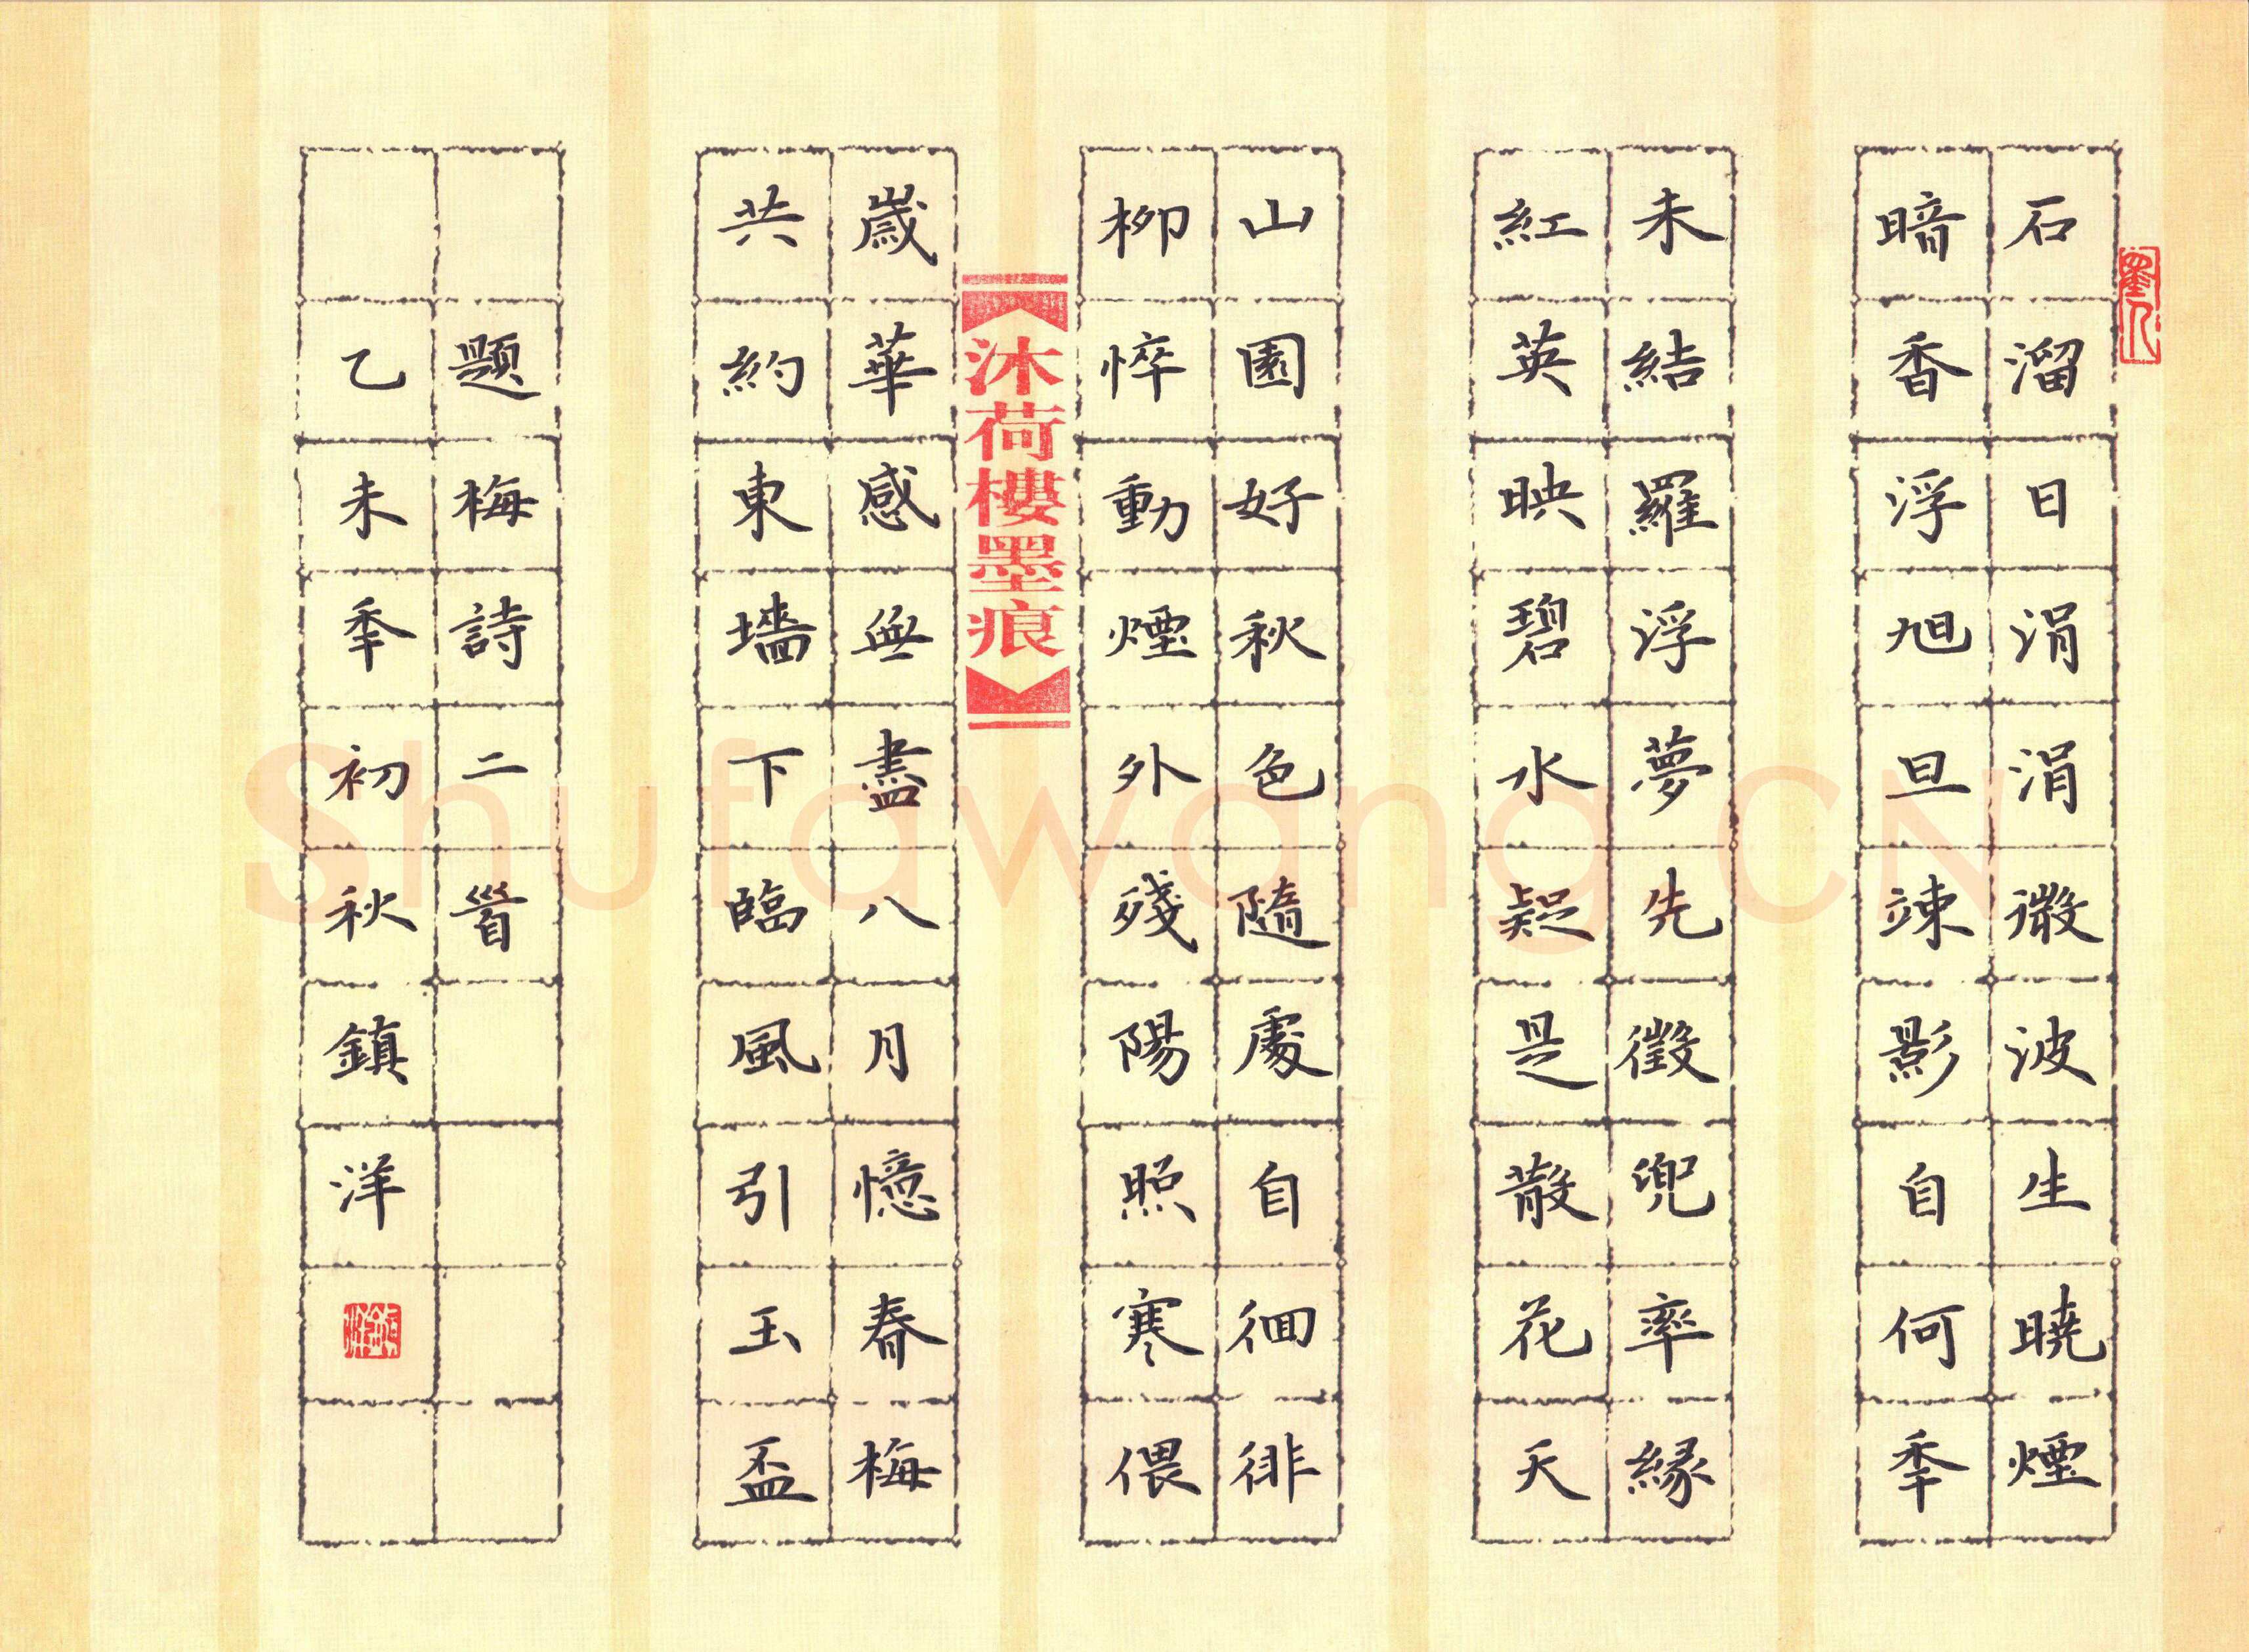 石溜日涓涓微波生曉煙
暗香浮旭旦竦影自何秊
未結羅浮夢先徵兜率緣
紅英映碧水疑是散花天
山園好秋色隨處自徊徘
柳悴動煙外殘陽照寒偎
沐荷樓墨痕
歲華感無盡八月憶春梅
共約東墻下臨風引玉盃
題梅詩二首
乙未秊初秋鎮洋
Shufawang.CN